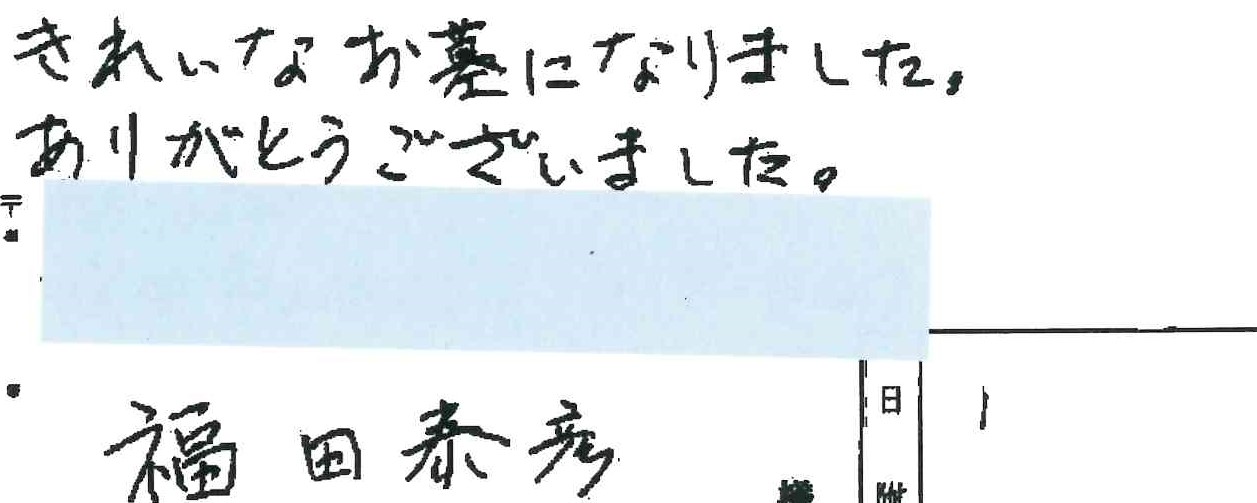 きれいなお墓になりました。
ありがとうございました。
〒
福田泰彦 様
日